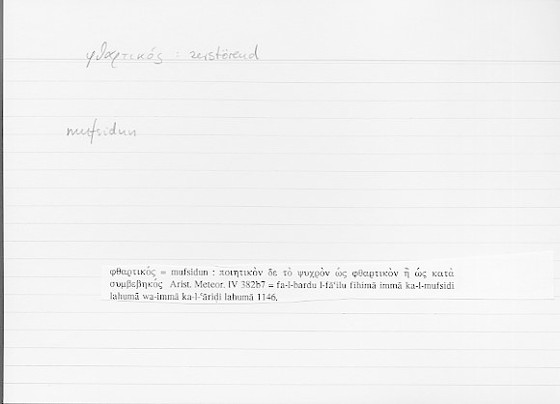 φθαρτικός : zerstörend
mufsidun
φθαρτικός = mufsidun : ποιητικὸν δε τὸ ψυχρὸν ὡς φθαρτικὸν ἢ ὡς κατὰ
συμβεβηκός Arist. Meteor. IV 382b7 = fa-l-bardu l-fāʿilu fīhimā immā ka-l-mufsidi
lahumā wa-immā ka-l-ʿāriḍi lahumā 1146.